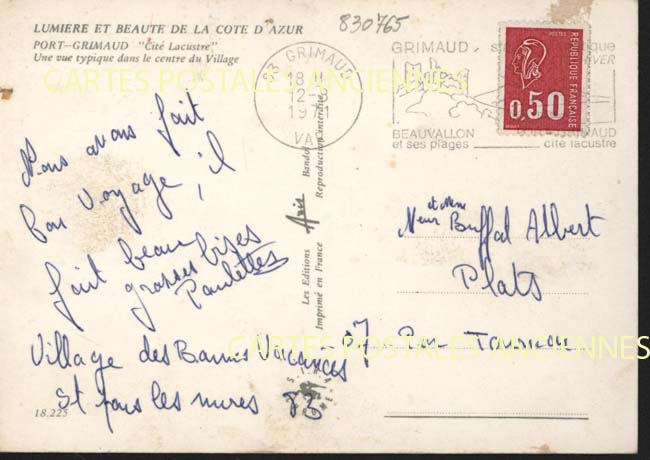 830765
LUMIERE ET BEAUTE DE LA COTE D'AZUR
PORT-GRIMAUD "Cité Lacustre"
Une vue typique dans le centre du Village
CARTES POSTALES ANCIENNES
83 GRIMAUD
18 H
12-
19
VAR
GRIMAUD,
HIVER
BEAUVALLON
et ses plages
GRIMAUD
cité lacustre
POSTES
RÉPUBLIQUE FRANÇAISE
0,50
Nous avons fait
bon voyage, il
fait beau
grosses bises
Paulette
Village des Bannes Vacances!
St pons les mures 83
18.225
Les Editions Aris Bandol
Imprimé en France Reproduction interdite
et Mme
Meur Buffat Albert
Plats
07 Par Tournon
CARTES POSTALES ANCIENNES